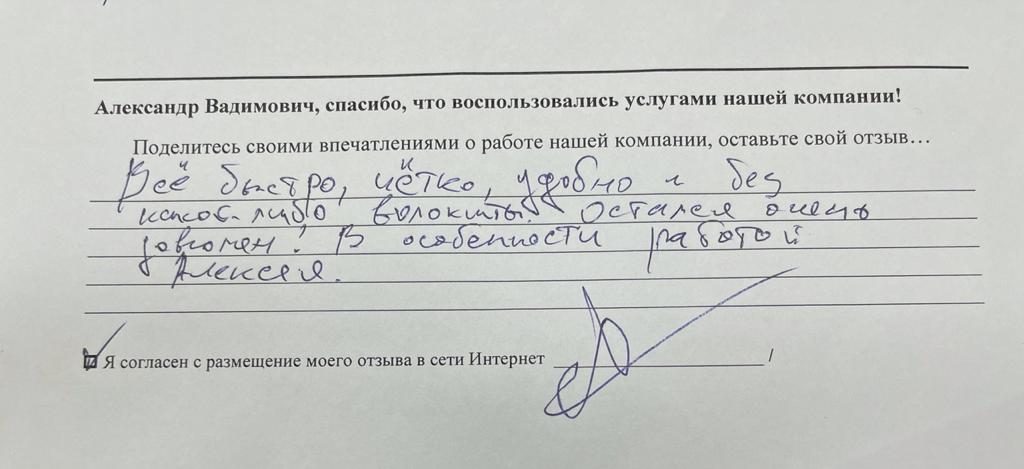 Александр Вадимович, спасибо, что воспользовались услугами нашей компании!
Поделитесь своими впечатлениями о работе нашей компании, оставьте свой отзыв…
Всё быстро, чётко, удобно и без
какой-либо волокиты! Остался очень
доволен! В особенности работой
Алексея.
Я согласен с размещение моего отзыва в сети Интернет /